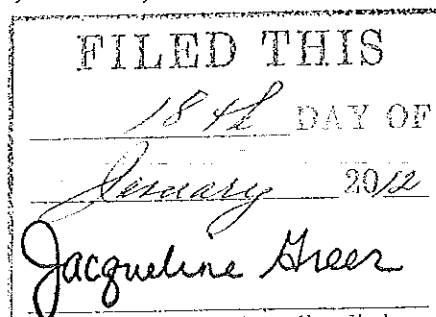 FILED THIS
18th DAY OF
January 2012
Jacqueline Greer